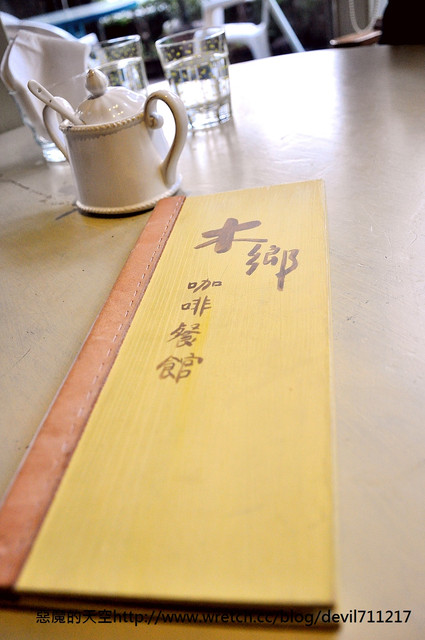 木鄉
咖啡餐館
惡魔的天空http://www.wretch.cc/blog/devil711217